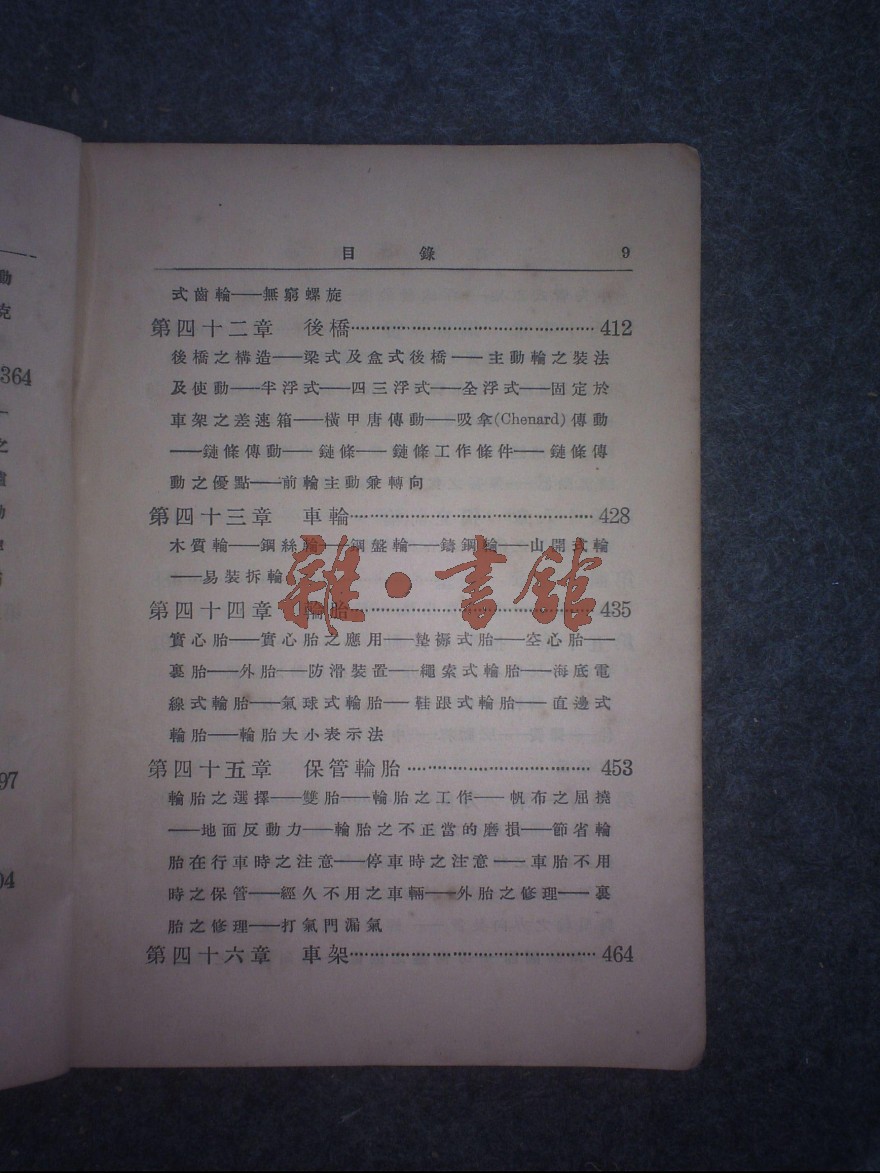 目錄 9
式齒輪——無窮螺旋
第四十二章 後橋 412
後橋之構造——梁式及盒式後橋——主動輪之裝法
及使動——半浮式——四三浮式——全浮式——固定於
車架之差速箱——橫甲唐傳動——吸拿(Chenard)傳動
——鏈條傳動——鏈條——鏈條工作條件——鏈條傳
動之優點——前輪主動兼轉向
第四十三章 車輪 428
木質輪——鋼絲輪——鋼盤輪——鑄鋼輪——山開式輪
——易裝拆輪
第四十四章 輪胎 435
實心胎——實心胎之應用——墊褥式胎——空心胎——
裏胎——外胎——防滑裝置——繩索式輪胎——海底電
線式輪胎——氣球式輪胎——鞋跟式輪胎——直邊式
輪胎——輪胎大小表示法
第四十五章 保管輪胎 453
輪胎之選擇——雙胎——輪胎之工作——帆布之屈撓
——地面反動力——輪胎之不正當的磨損——節省輪
胎在行車時之注意——停車時之注意——車胎不用
時之保管——經久不用之車輛——外胎之修理——裏
胎之修理——打氣門漏氣
第四十六章 車架 464
雜·書館
動
克
364
之
97
04